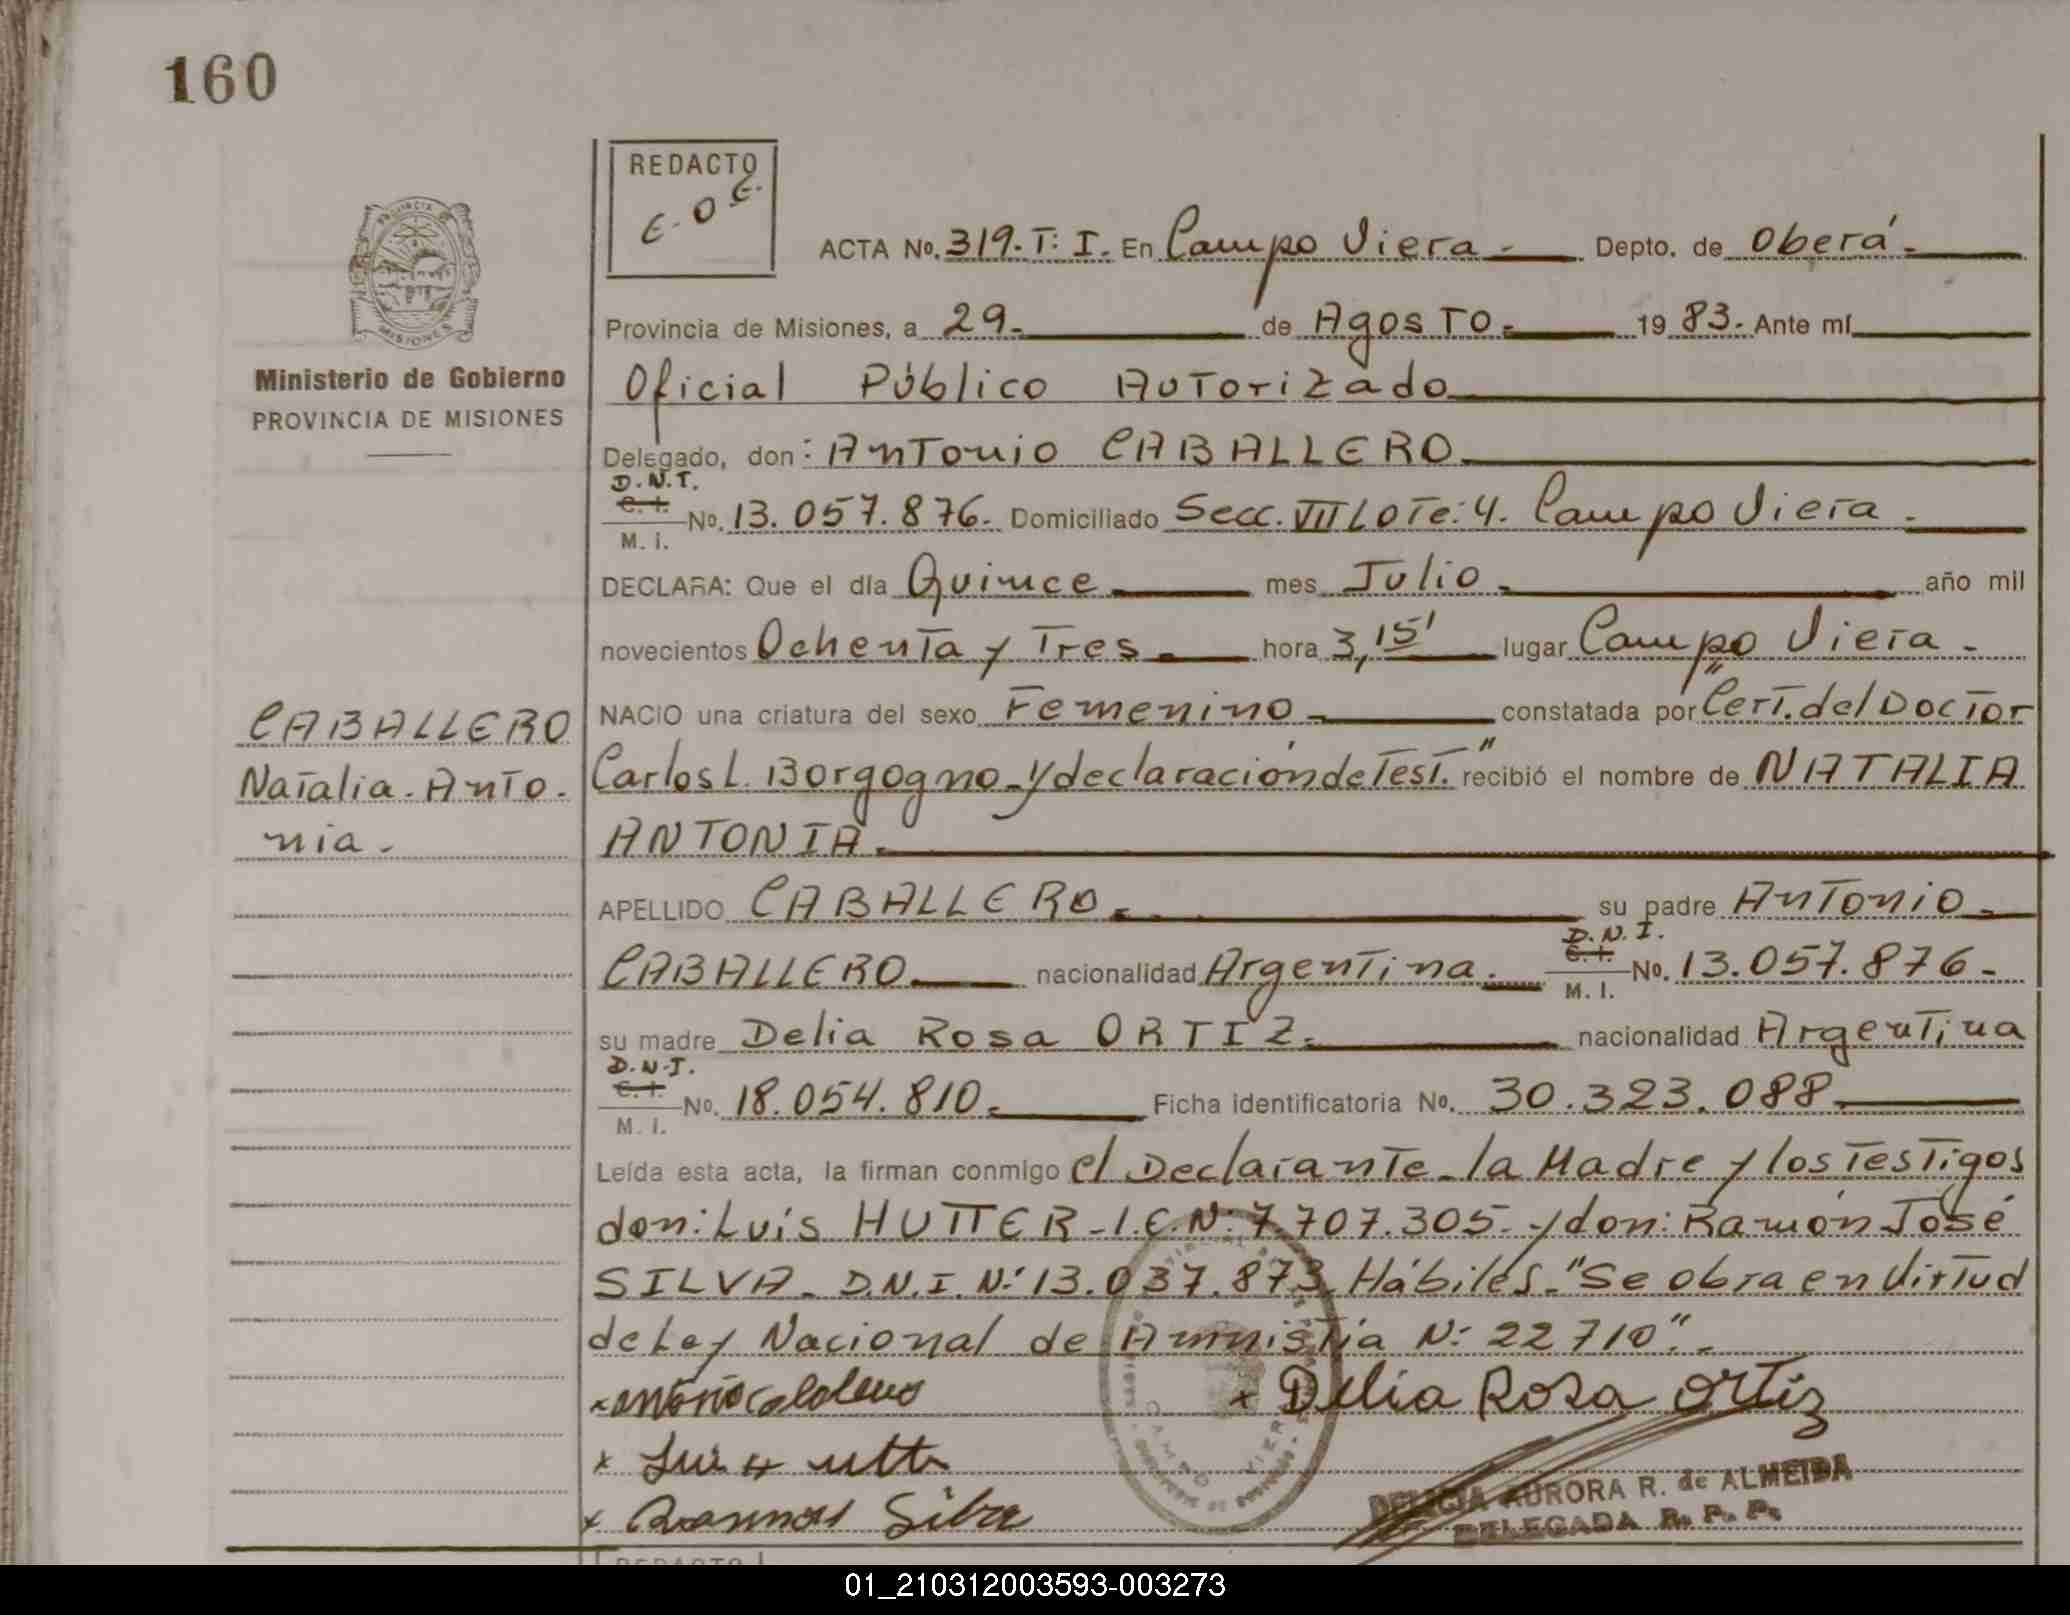 160
REDACTO
E.O.E.
ACTA No. 319. T: I. En Campo Viera - Depto. de Oberá -
Provincia de Misiones, a 29 - de Agosto - 19 83. Ante mí
Ministerio de Gobierno
PROVINCIA DE MISIONES
Oficial Público Autorizado
Delegado, don: Antonio CABALLERO
D.N.I.
C. I.
M. I. No. 13.057.876. Domiciliado Secc. VII Lote: 4. Campo Viera -
DECLARA: Que el día Quince mes Julio - año mil
novecientos Ochenta y Tres - hora 3,15' lugar Campo Viera -
NACIO una criatura del sexo Femenino - constatada por "Cert. del Doctor
Carlos L. Borgogno - y declaración de Test." recibió el nombre de NATALIA
ANTONIA.
CABALLERO
Natalia - Anto-
nia -
APELLIDO CABALLERO - su padre Antonio -
CABALLERO nacionalidad Argentina. D.N.I. C. I. M. I. No. 13.057.876 -
su madre Delia Rosa ORTIZ - nacionalidad Argentina
D.N.I.
C. I.
M. I. No. 18.054.810 - Ficha identificatoria No. 30.323.088
Leída esta acta, la firman conmigo el Declarante - la Madre y los Testigos
don: Luis HUTTER - L.E. Nº: 7.707.305 - y don: Ramón José
SILVA - D.N.I. Nº: 13.037.873 Hábiles - "Se obra en Virtud
de Ley Nacional de Amnistía Nº: 22710". -
x Antonio Caballero x Delia Rosa Ortiz
x Luis Hutter
x Ramon Silva
DELICIA AURORA R. de ALMEIDA
DELEGADA R. P. P.
CAMPO VIERA
REDACTO
01_210312003593-003273